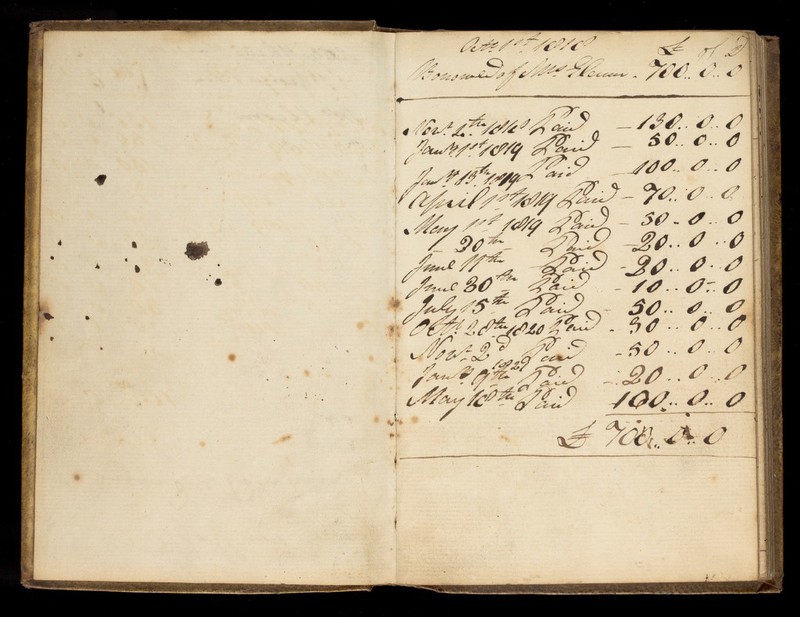 Octr 1st 1818 £ s D
Borrowed of Mrs - 700.. 0.. 0
Novr 4th 1818 Paid - 130.. 0.. 0
Janry 1st 1819 Paid - 50.. 0.. 0
Janry 13th 1819 Paid - 100.. 0.. 0
April 1st 1819 Paid - 70.. 0.. 0
May 1st 1819 Paid - 50.. 0.. 0
- 20th - Paid - 20.. 0.. 0
June 11th - Paid - 20.. 0.. 0
June 30th Paid - 10.. 0.. 0
July 15th Paid - 50.. 0.. 0
Octr 28th 1820 Paid - 30.. 0.. 0
Novr 2d Paid - 50.. 0.. 0
Janry 9th 1821 Paid - 20.. 0.. 0
May 18th Paid 100.. 0.. 0
£ 700.. 0.. 0